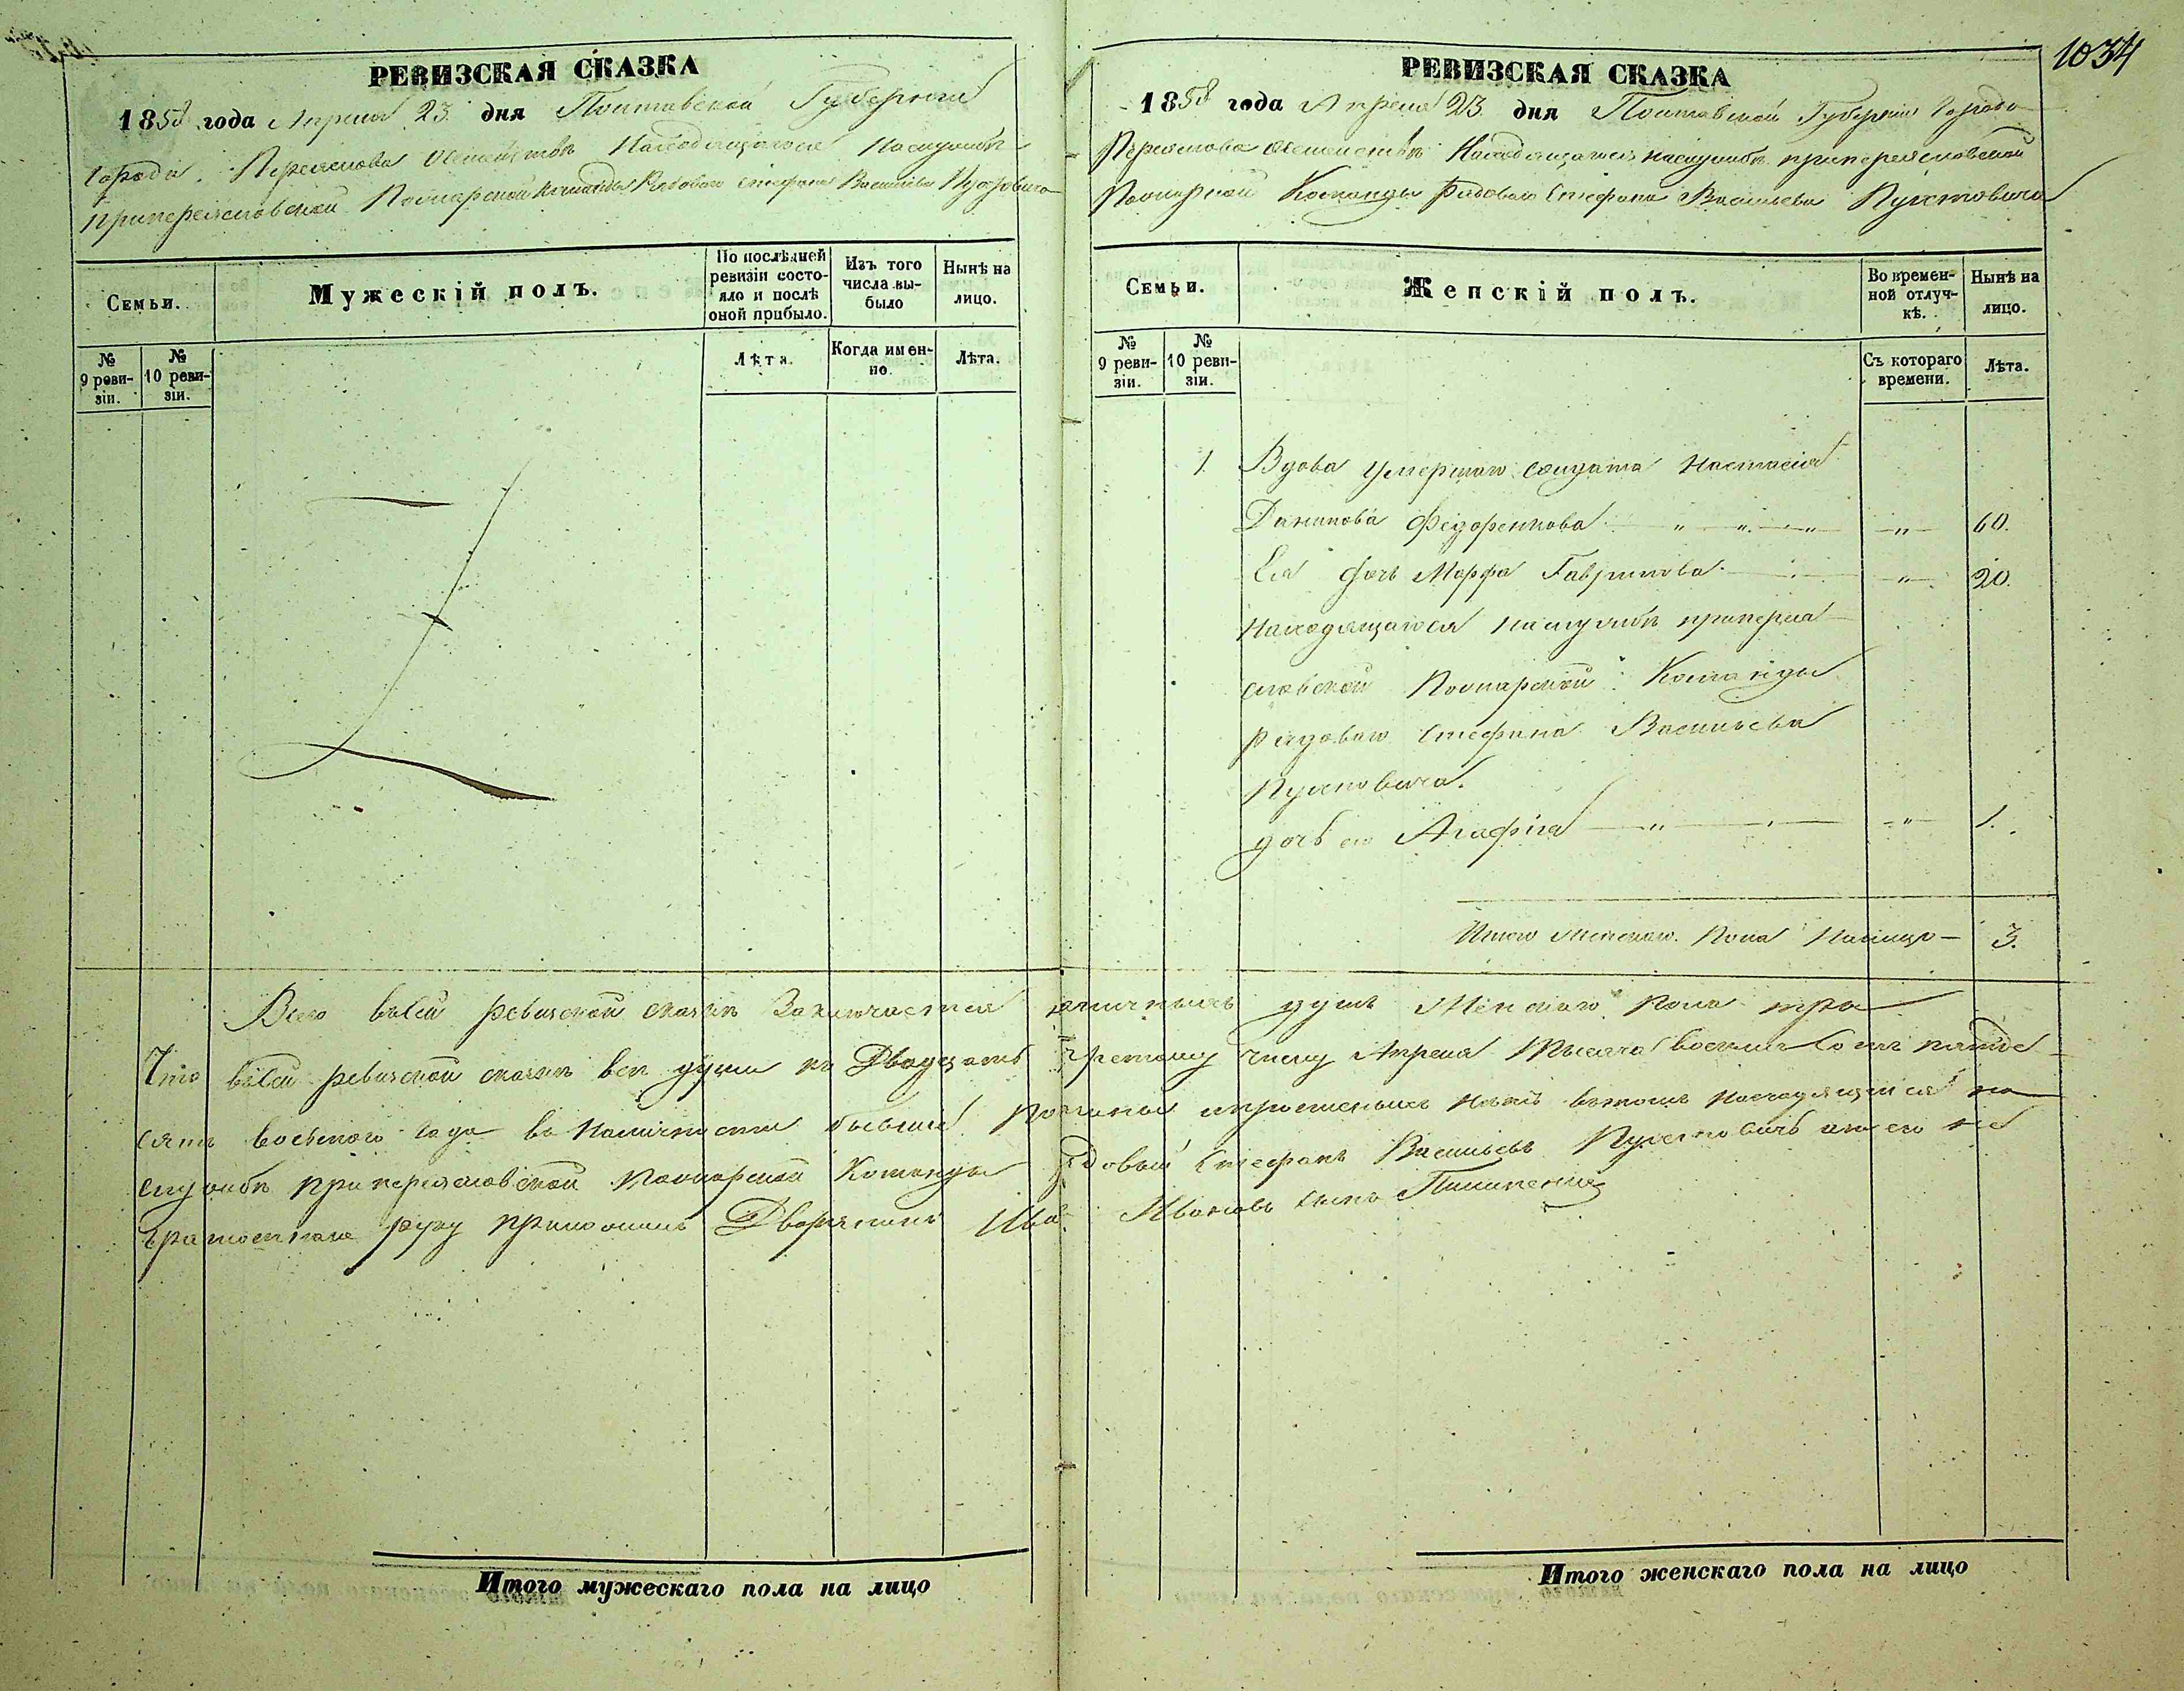 РЕВИЗСКАЯ СКАЗКА
1858 года Апреля 23 дня Полтавской Губернии
Города Переяслова Семейств Находящагося Наслужбѣ
приперeясловской Пожарной команды Рядоваго Стефана Васильева
Семьи.
Мужескій полъ.
По послѣдней ревизіи состояло и послѣ оной прибыло.
Изъ того числа выбыло
Нынѣ на лицо.
№ 9 ревизіи.
№ 10 ревизіи.
Лѣта.
Когда именно.
Лѣта.
Итого мужескаго пола на лицо
1034
РЕВИЗСКАЯ СКАЗКА
1858 года Апреля 23 дня Полтавской Губернии Города
Переяслова Находящагося наслужбѣ приперeясловской
Пожарной Команды Рядоваго Стефана Васильева Пустовита
Семьи.
Женскій полъ.
Во временной отлучкѣ.
Нынѣ на лицо.
№ 9 ревизіи.
№ 10 ревизіи.
Съ котораго времени.
Лѣта.
1. Вдова Умершаго солдата Настасія
Данилова Федоренкова " " " " 60.
Ея дочь Марфа Гаврилова " 20.
Находящагося наслужбѣ приперея
словской Пожарной Команды
рядоваго Стефана Васильева
Пустовита.
дочь его Агафія " " 1.
Итого женскаго Пола Налицо 3.
Всего всей ревизской сказкѣ Заключается наличныхъ душъ Женскаго Пола три
Что всей ревизской сказкѣ всѣ души къ Двадцать третьему числу Апреля Тысяча восемь сотъ пятьде
сятъ восьмого года в Наличности бывшия Показаны и прописныхъ нѣтъ вътомъ находящийся на
службѣ приперeясловской Пожарной Команды рядовый Стефанъ Васильевъ Пустовитъ аза его не
грамотнаго руку приложилъ Дворянинъ Ивановъ сынъ
Итого женскаго пола на лицо